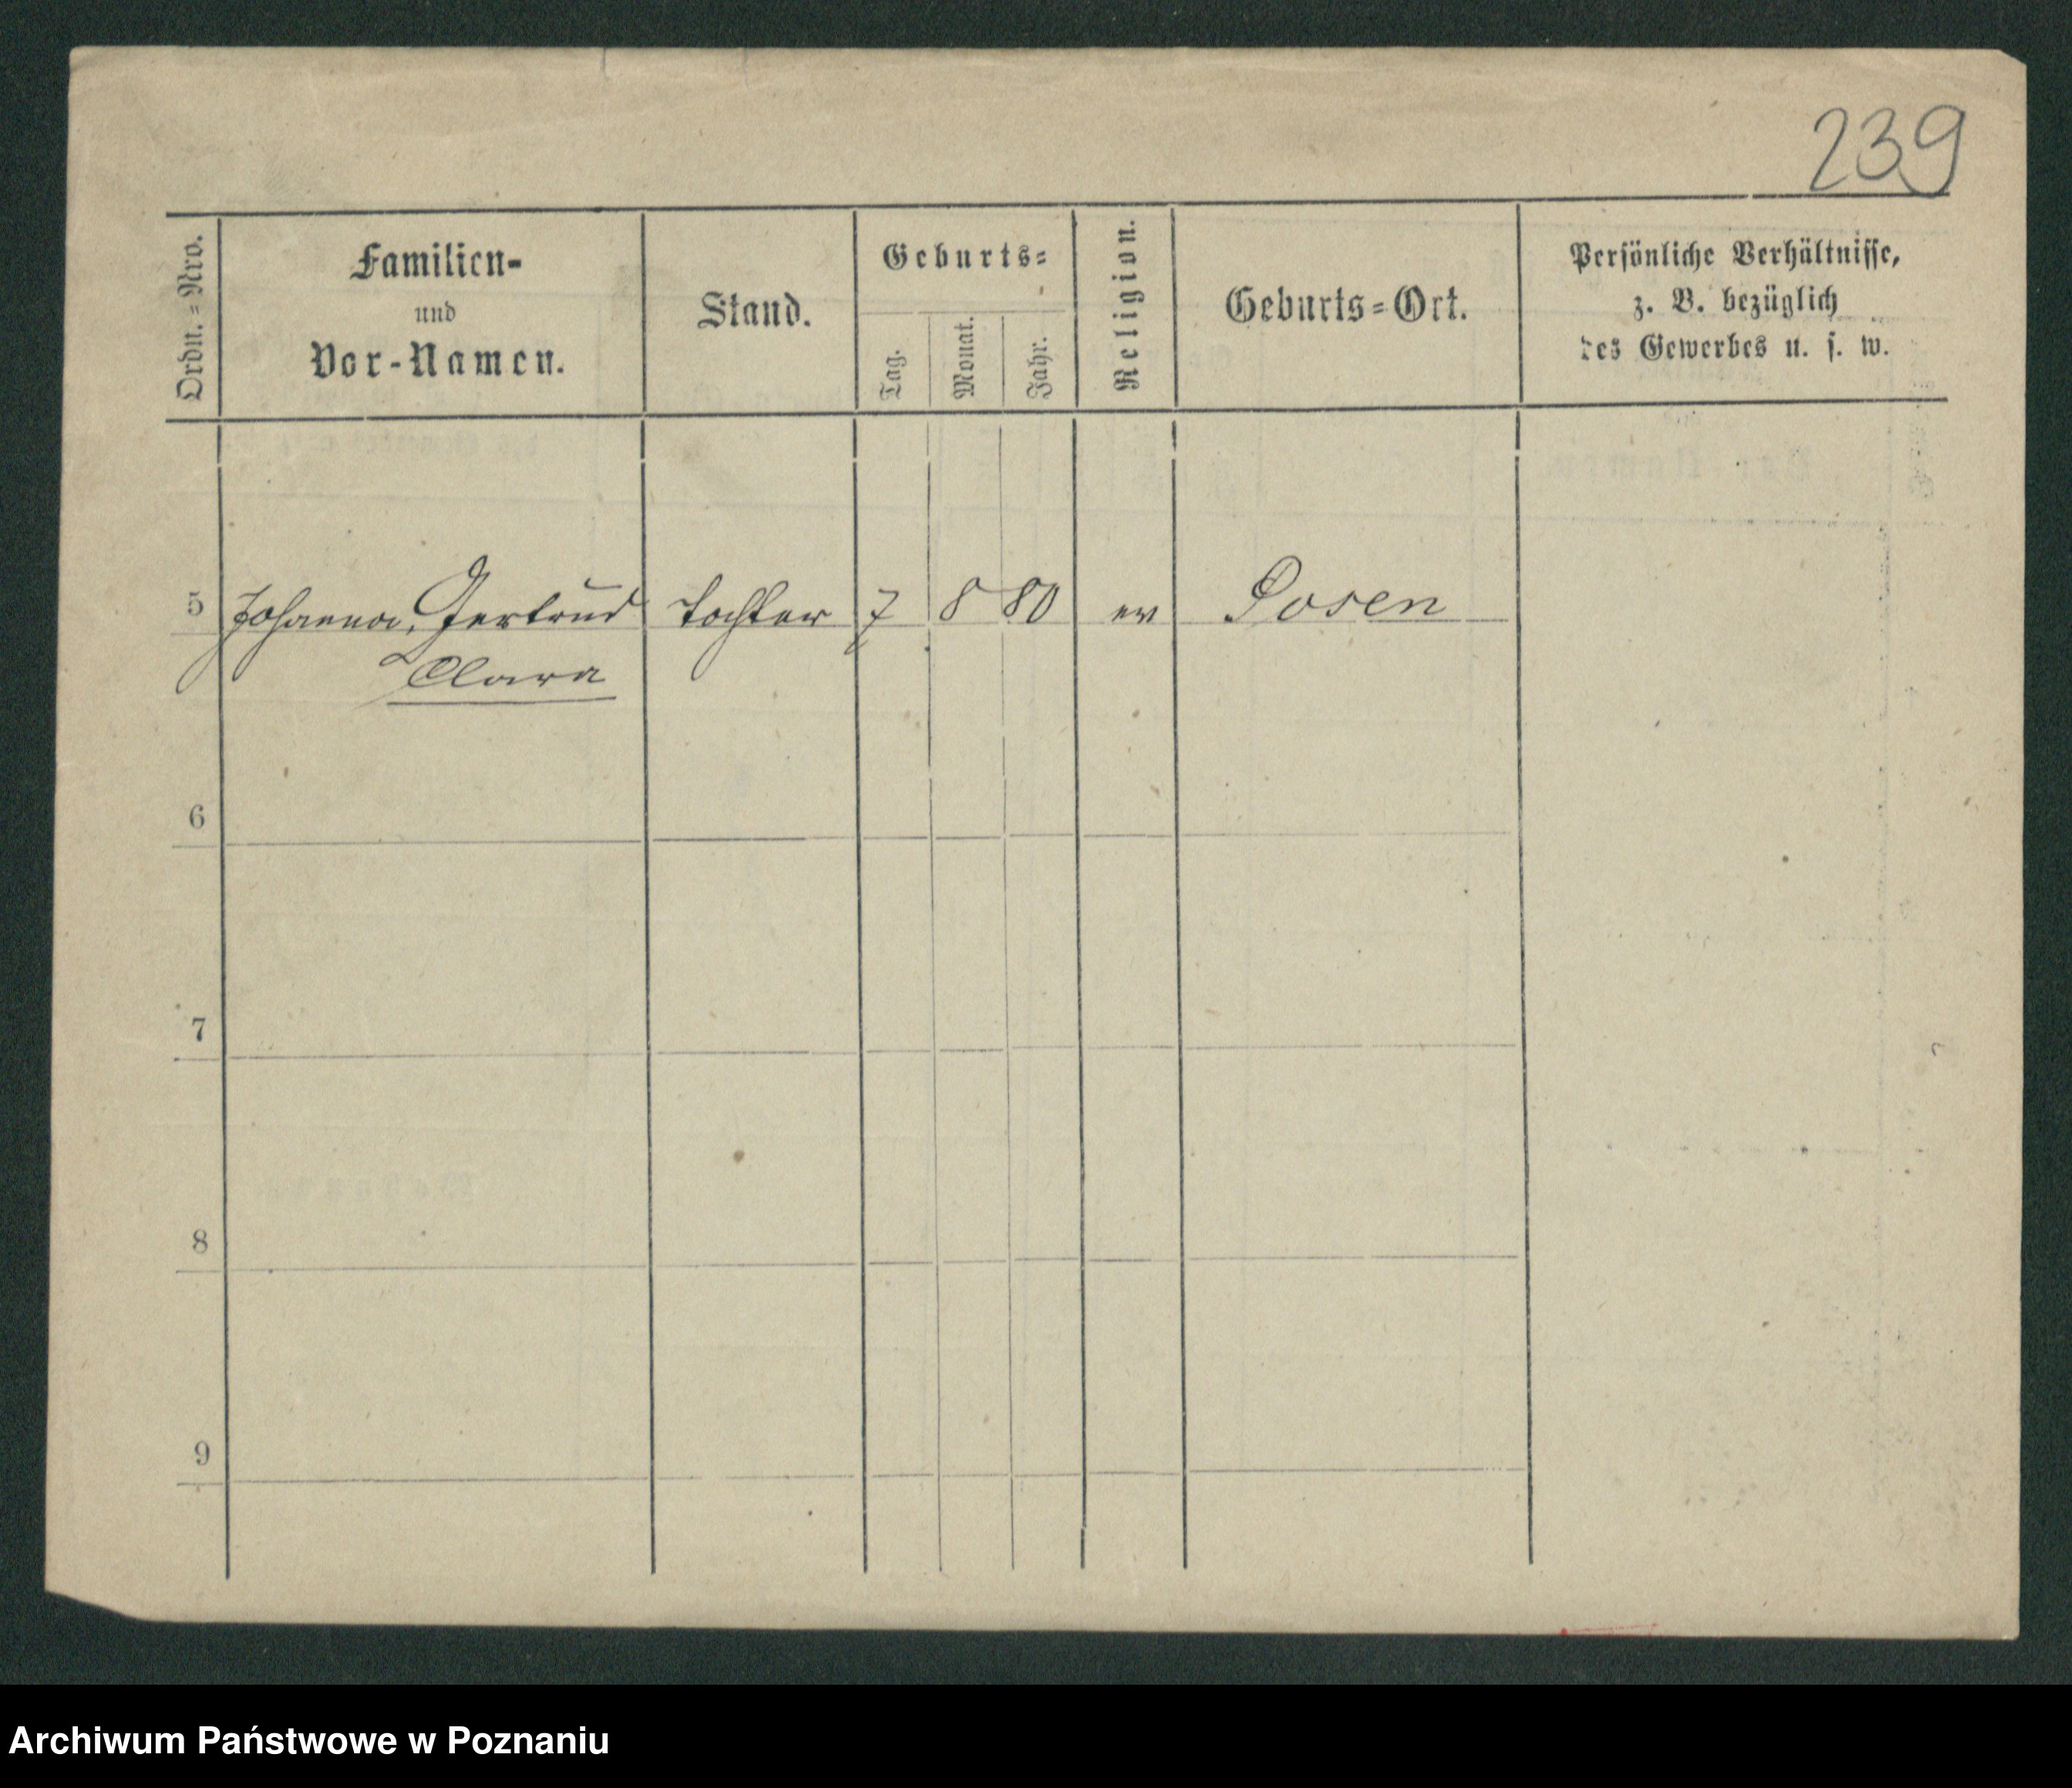 239
Ordn.=Nro.
Familien-
und
Vor-Namen.
Stand.
Geburts=
Tag.
Monat.
Jahr.
Religion.
Geburts=Ort.
Persönliche Verhältnisse,
z. B. bezüglich
des Gewerbes u. s. w.
5 Johanna, Gertrud Tochter 7 8 80 ev Posen
Clara
6
7
8
9
Archiwum Państwowe w Poznaniu